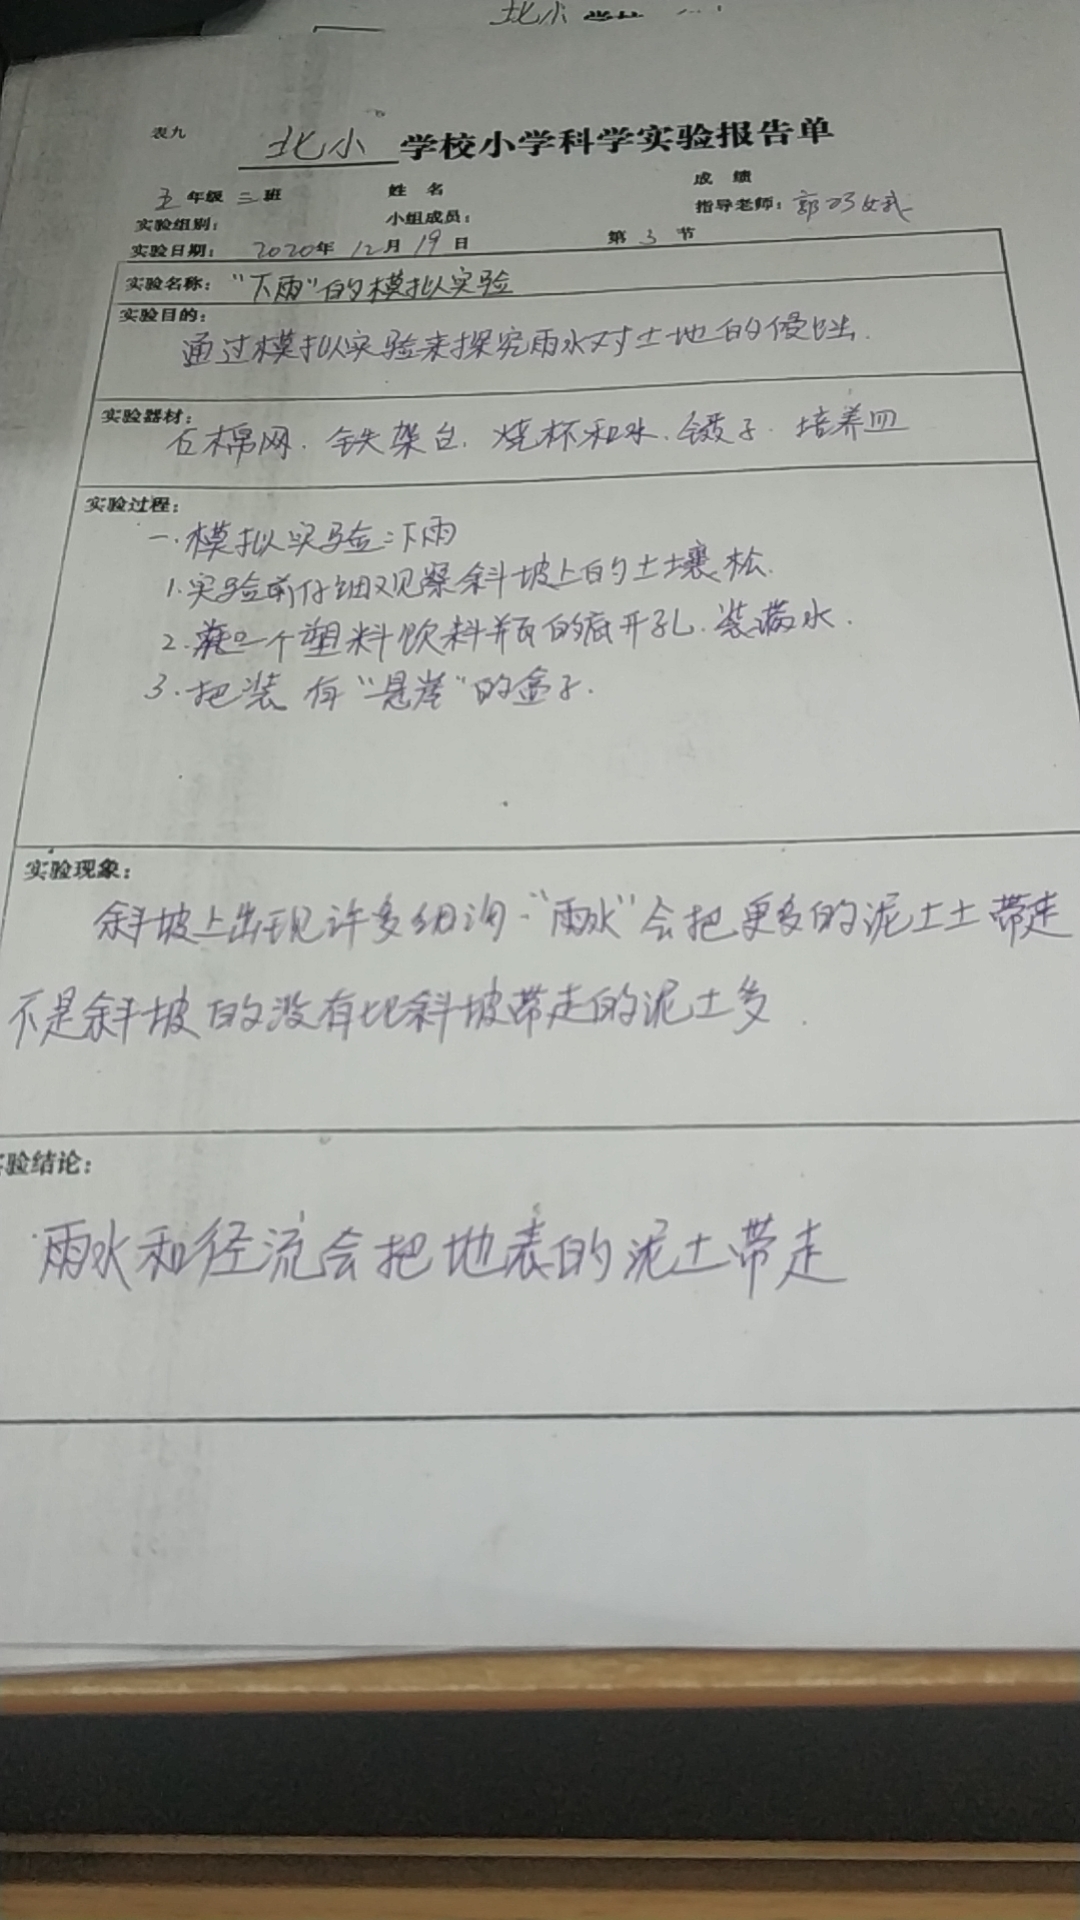 北小学校
表九
北小学校小学科学实验报告单
五年级三班 姓名 成绩
实验组别： 小组成员： 指导老师：郭
实验日期：2020年12月19日 第3节
实验名称："下雨"的模拟实验
实验目的：
通过模拟实验来探究雨水对土地的侵蚀.
实验器材：
石棉网.铁架台.烧杯和水.镊子.培养皿
实验过程：
一.模拟实验:下雨
1.实验前仔细观察斜坡上的土壤松.
2.在一个塑料饮料瓶的底开孔.装满水.
3.把装有"悬崖"的盒子.
实验现象：
斜坡上出现许多细沟."雨水"会把更多的泥土土带走
不是斜坡的没有比斜坡带走的泥土多.
验结论：
雨水和径流会把地表的泥土带走